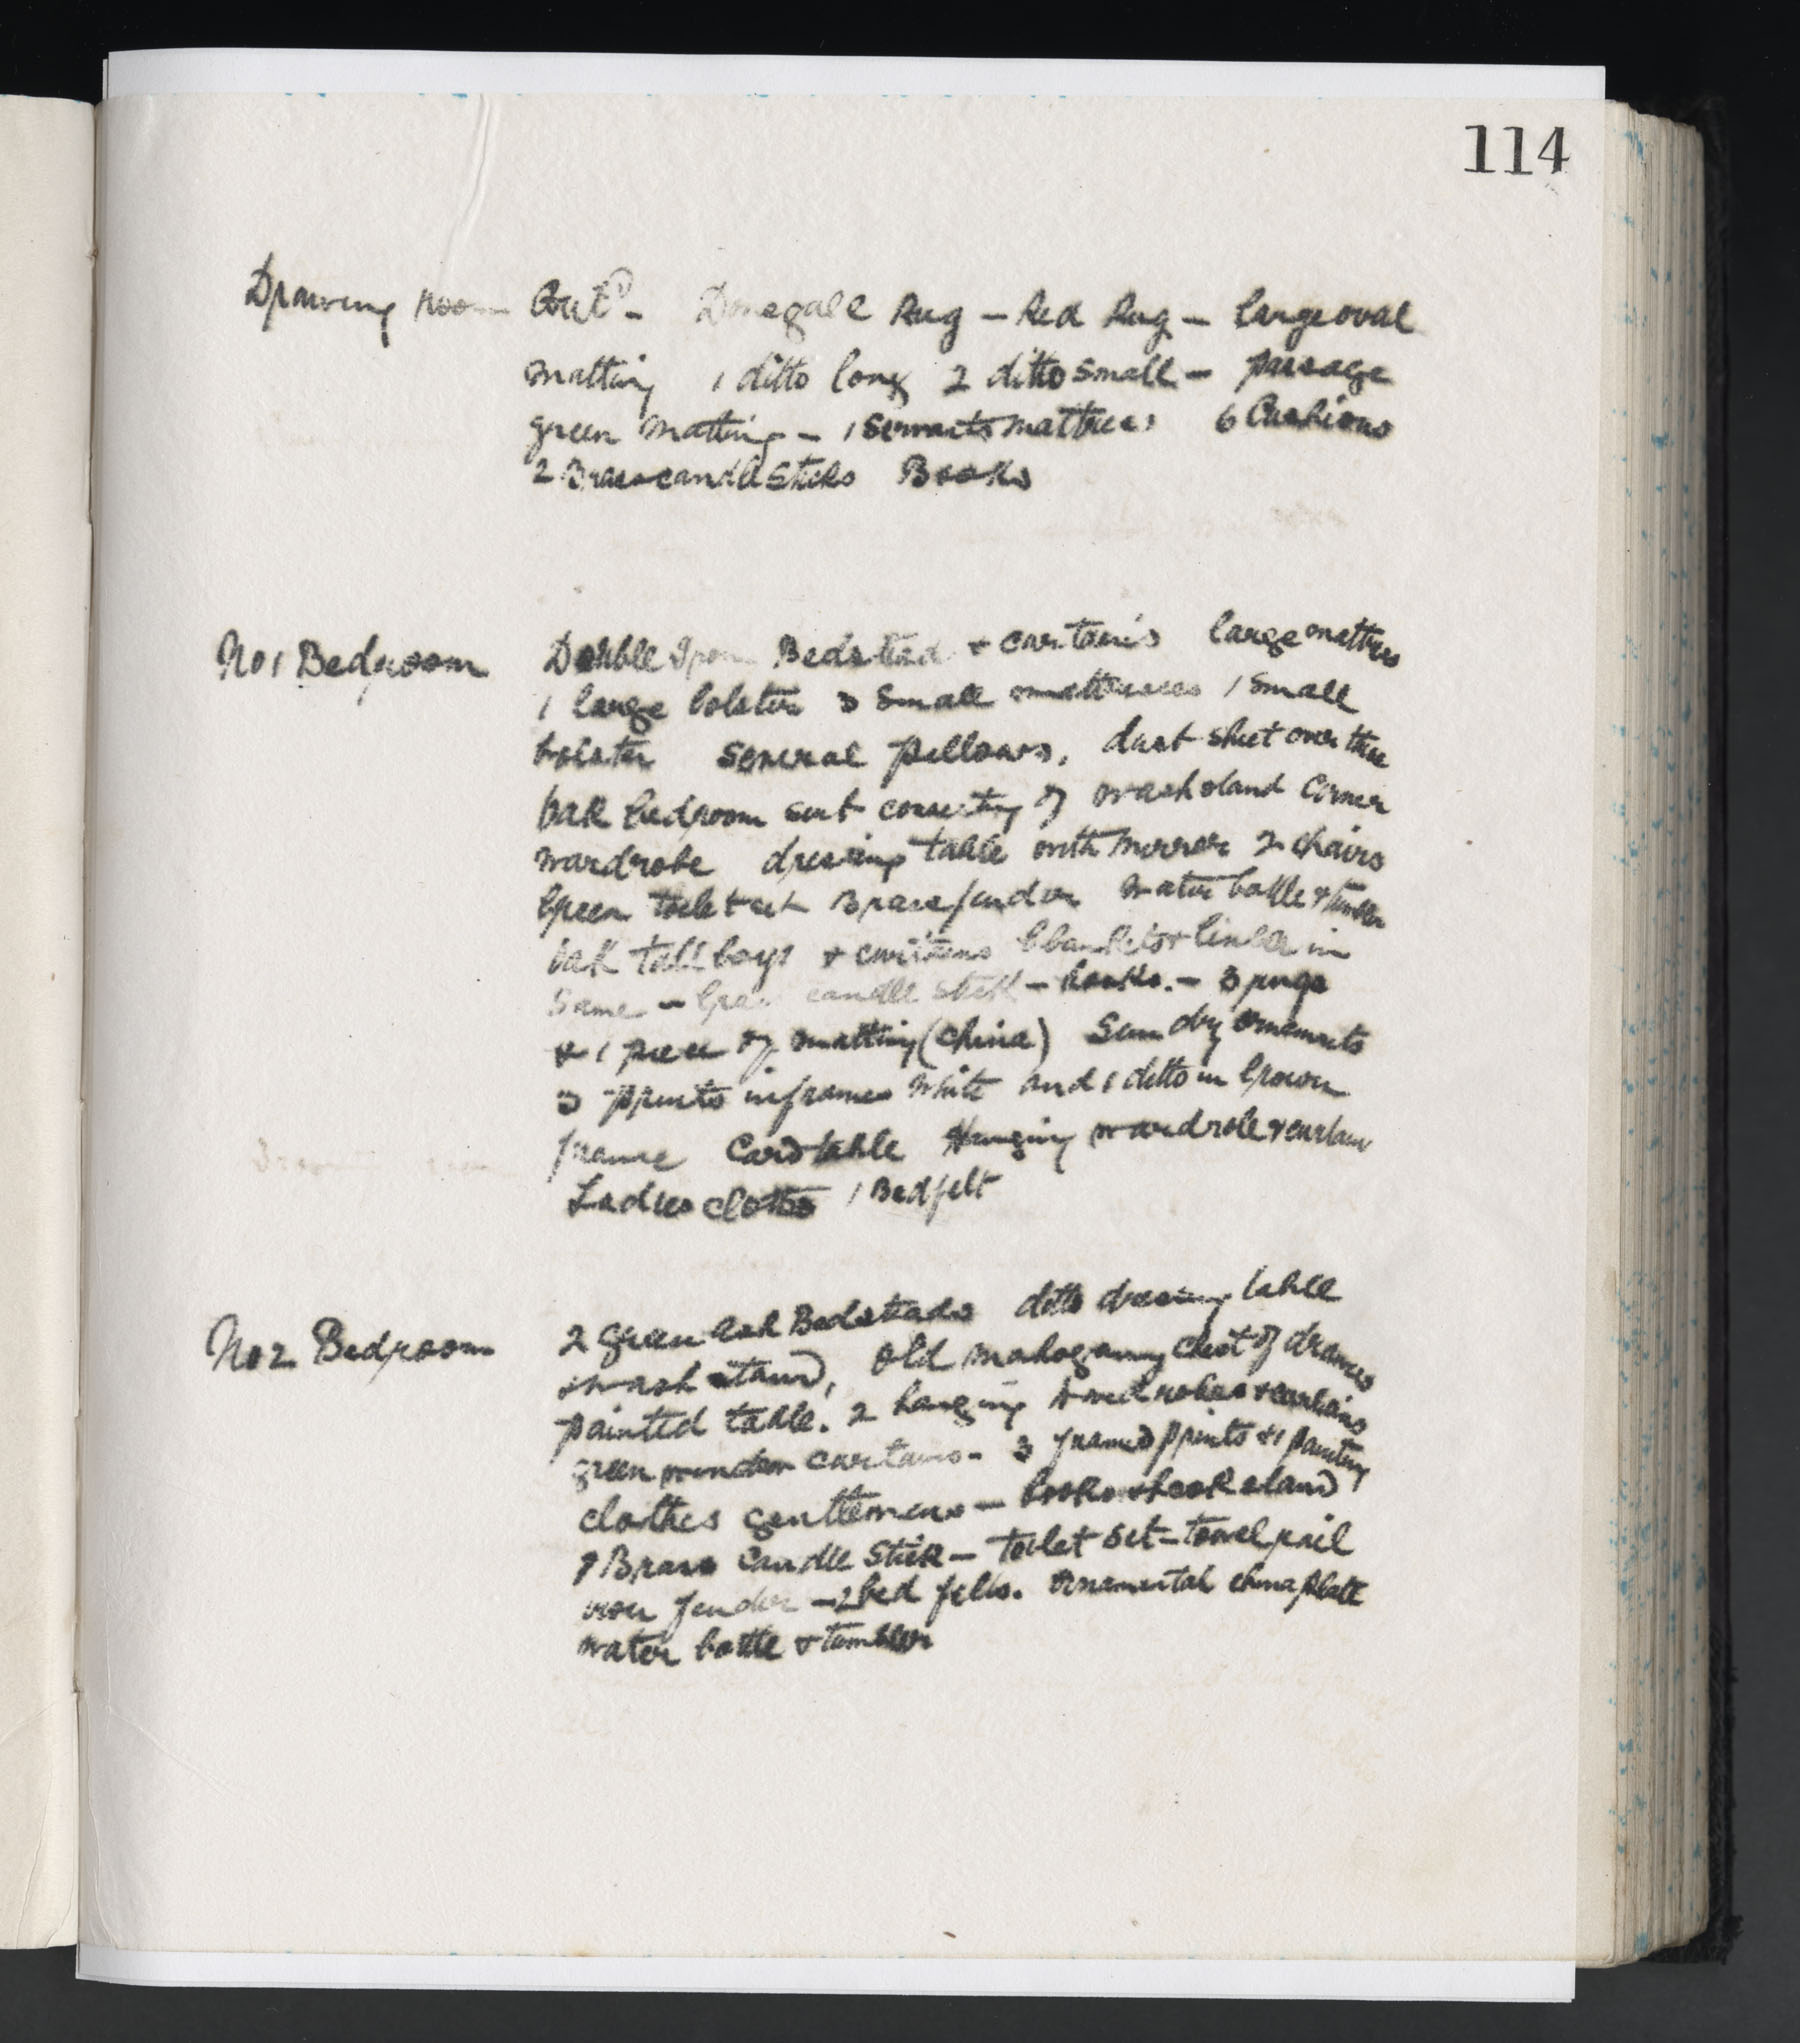 114
Drawing Room Cont^d - Donegall Rug - Red Rug - large oval
matting 1 ditto long 2 ditto small - passage
green matting - 1 servants mattress 6 Cushions
2 Brass candle sticks Books
No 1 Bedroom Double Iron Bedstead + curtains large mattress
1 large bolster 3 small mattresses 1 small
bolster several pillows, dust sheet over these
oak bedroom suit consisting of washstand corner
wardrobe dressing table with mirror 2 chairs
Green toilet set Brass fendor water bottle + tumbler
oak tall boys + curtains blankets + linen in
same - candle stick - books. - 3 rugs
+ 1 piece of matting (china) Sundry ornaments
3 prints in frames white and 1 ditto in brown
frame Card table Hanging wardrobe + curtain
Ladies clothes 1 Bed felt
No 2 Bedroom 2 green ash Bedsteads ditto dressing table
washstand, old mahogany chest of drawers
painted table. 2 hanging wardrobes + curtains
green window curtains - 3 framed prints + 1 painting
clothes gentlemens - books + book stand
Brass Candle Stick - toilet set - towel rail
iron fendor - 2 bed felts. ornamental china plate
water bottle + tumbler